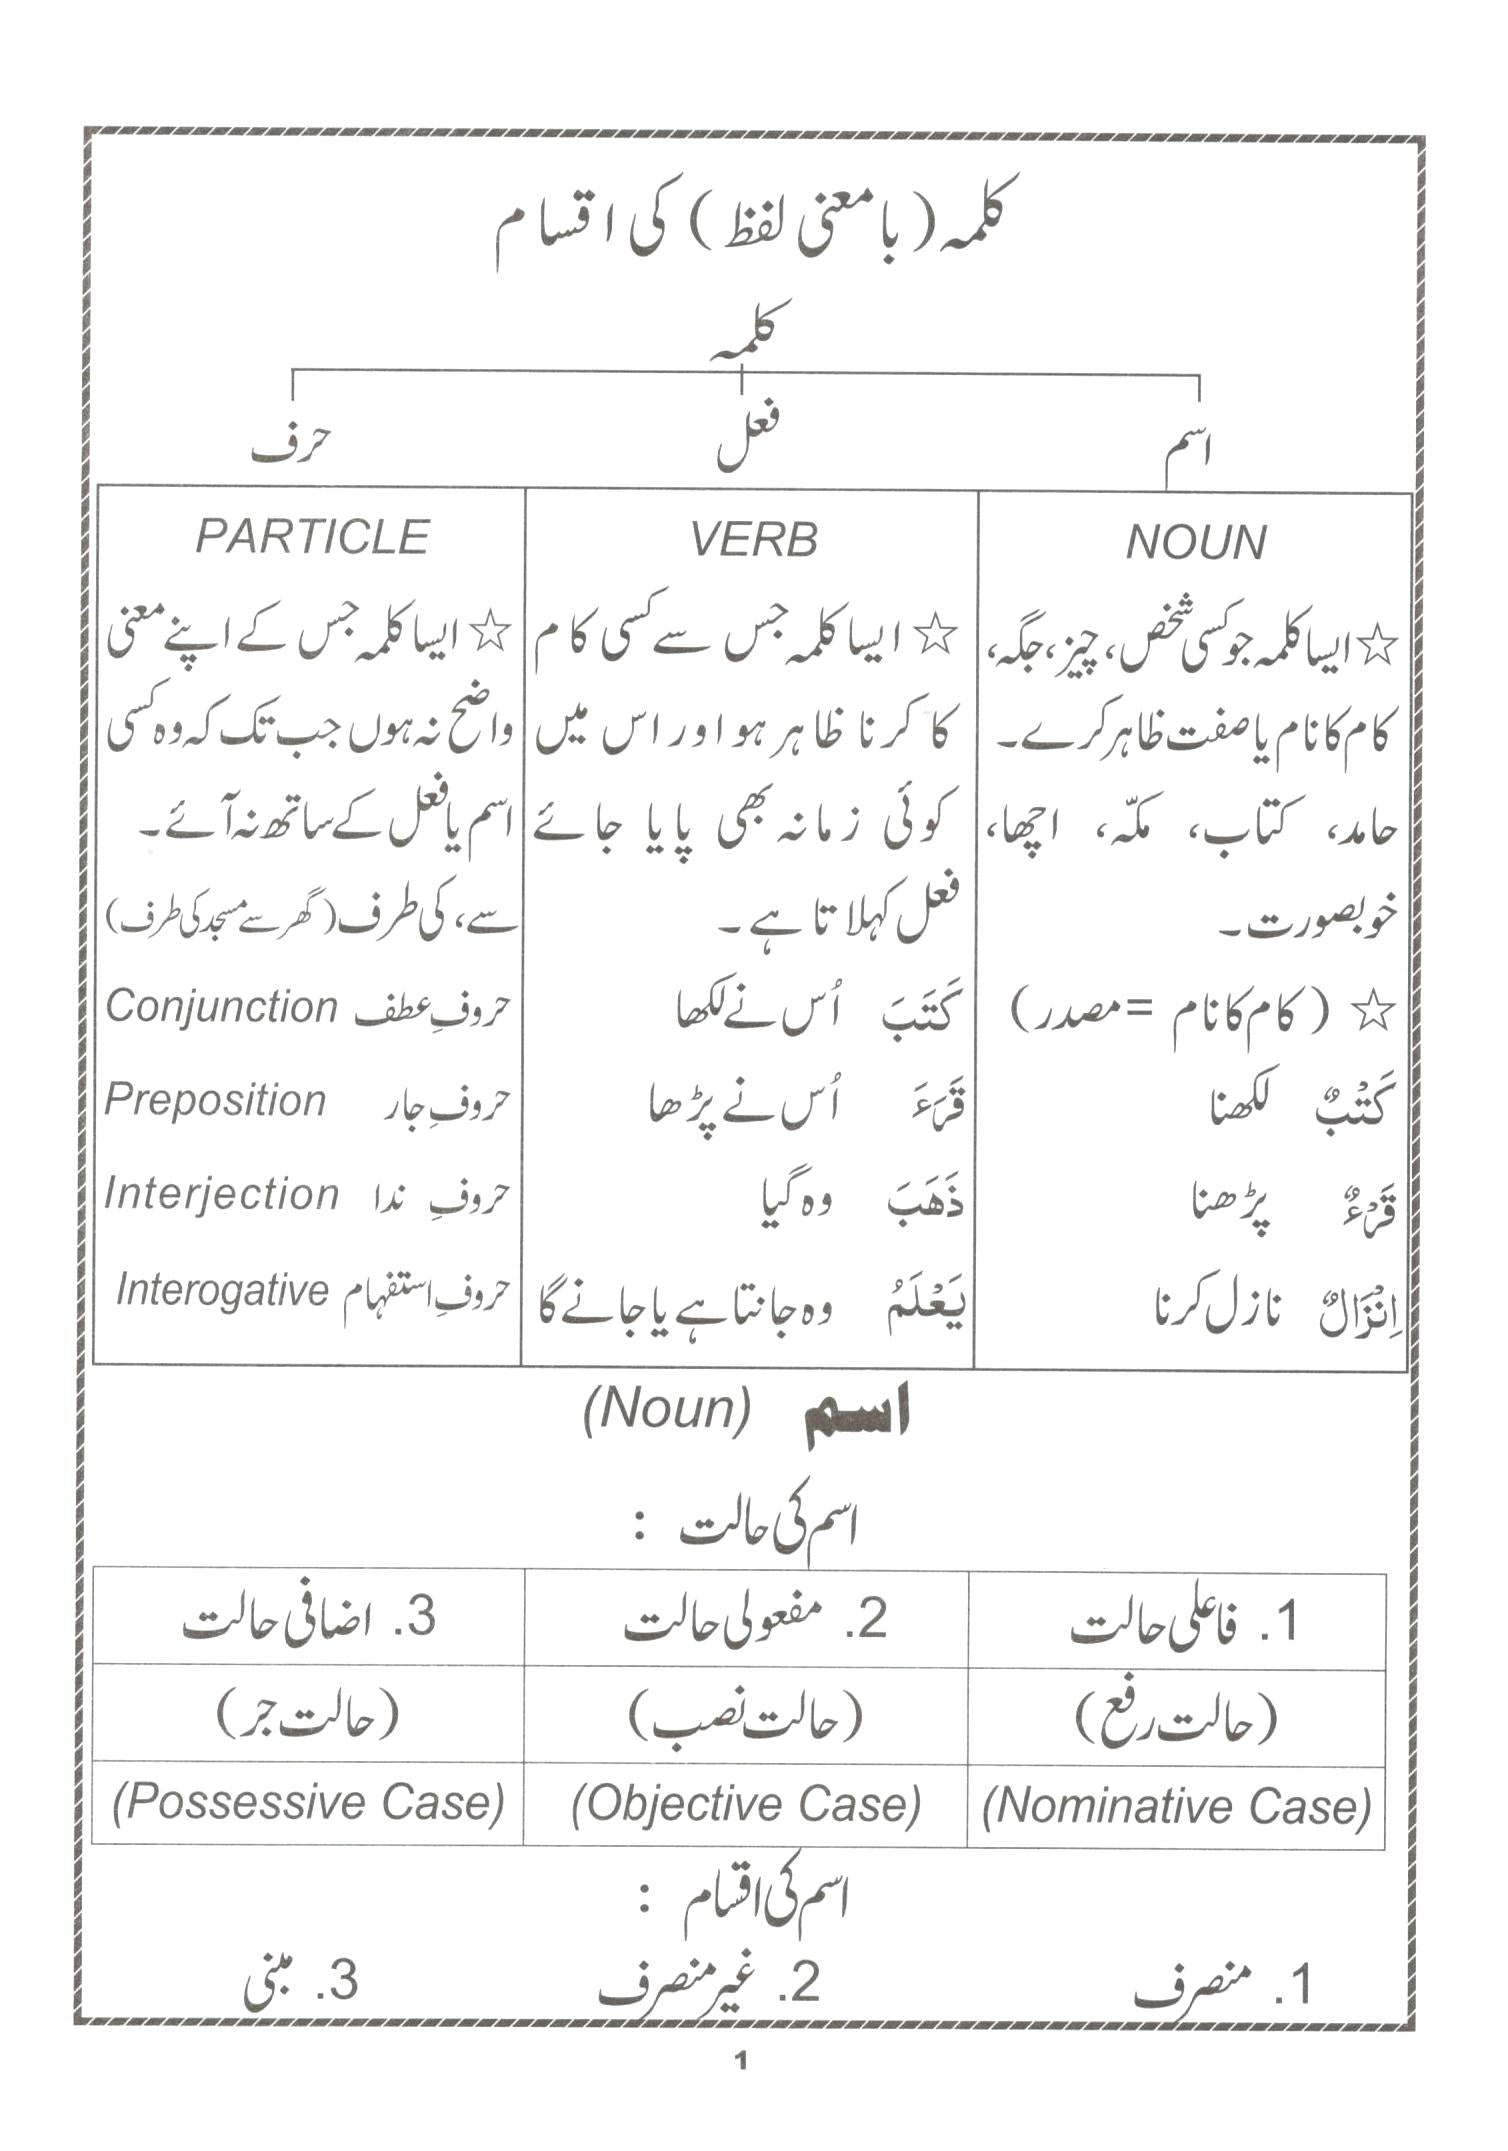 کلمہ (با معنی لفظ) کی اقسام
کلمہ
اسم
فعل
حرف
NOUN
☆ ایسا کلمہ جو کسی شخص، چیز، جگہ،
کام کا نام یا صفت ظاہر کرے۔
حامد، کتاب، مکّہ، اچھا،
خوبصورت۔
☆ (کام کا نام = مصدر)
کَتْبٌ لکھنا
قَرْءٌ پڑھنا
اِنْزَالٌ نازل کرنا
VERB
☆ ایسا کلمہ جس سے کسی کام
کا کرنا ظاہر ہو اور اس میں
کوئی زمانہ بھی پایا جائے
فعل کہلاتا ہے۔
کَتَبَ اُس نے لکھا
قَرَءَ اُس نے پڑھا
ذَهَبَ وہ گیا
يَعْلَمُ وہ جانتا ہے یا جانے گا
PARTICLE
☆ ایسا کلمہ جس کے اپنے معنی
واضح نہ ہوں جب تک کہ وہ کسی
اسم یا فعل کے ساتھ نہ آئے۔
سے، کی طرف (گھر سے مسجد کی طرف)
حروفِ عطف Conjunction
حروفِ جار Preposition
حروفِ ندا Interjection
حروفِ استفہام Interogative
اسم (Noun)
اسم کی حالت :
1. فاعلی حالت
2. مفعولی حالت
3. اضافی حالت
(حالت رفع)
(حالت نصب)
(حالت جر)
(Nominative Case)
(Objective Case)
(Possessive Case)
اسم کی اقسام :
1. منصرف
2. غیر منصرف
3. مبنی
1